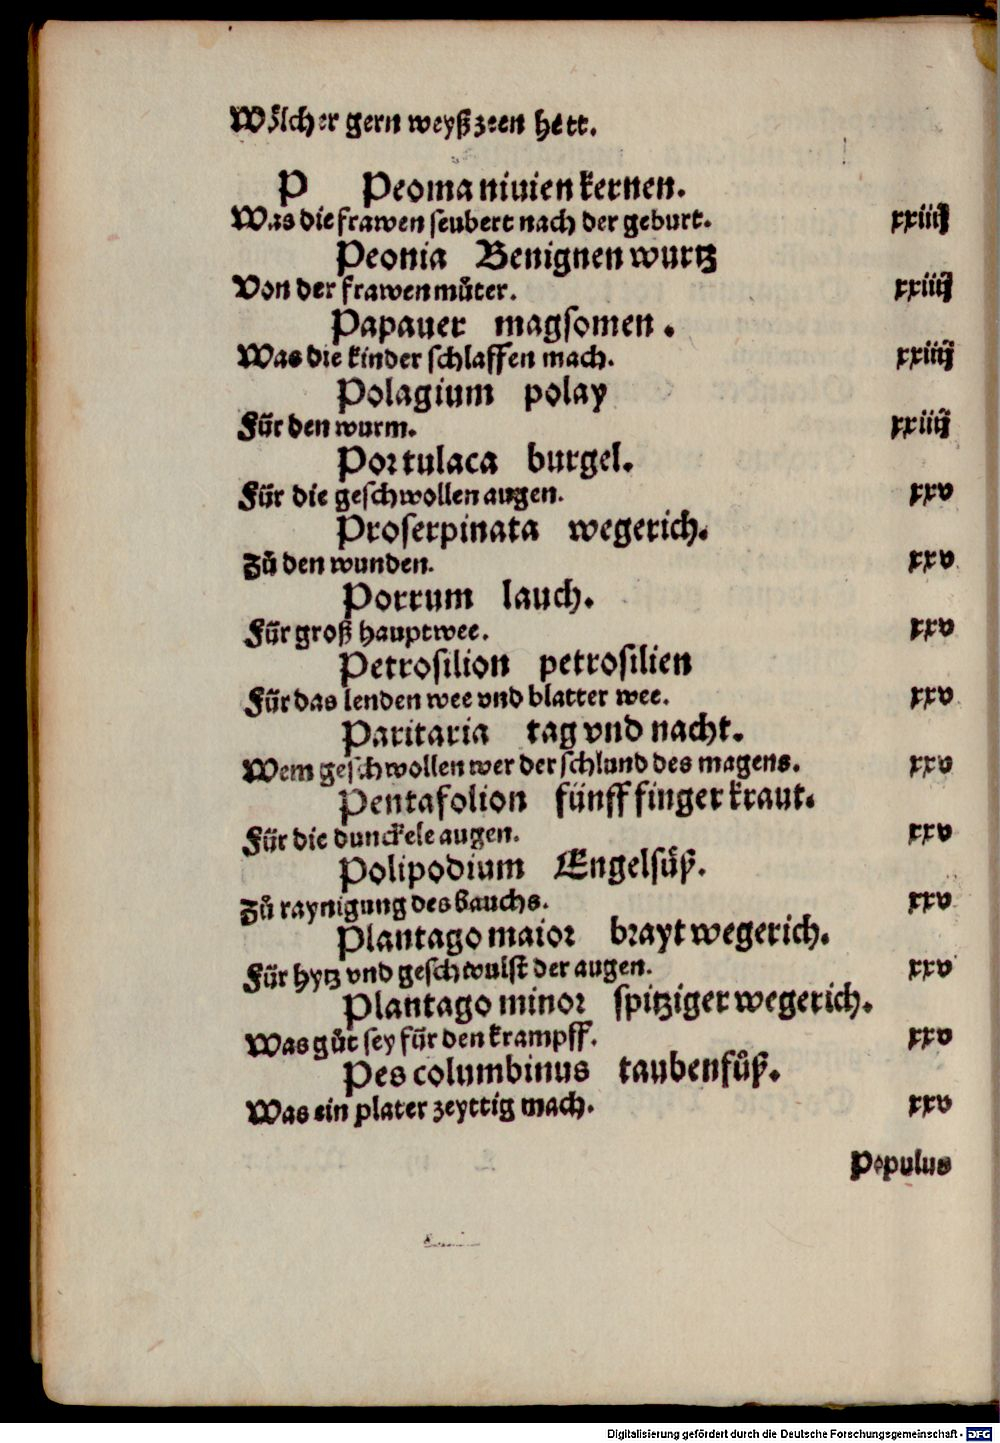 Woͤlcher gern weyß zeen hett.
P Peoma niuien kernen.
Was die frawen seubert nach der geburt. xxiiij
Peonia Benignen wurtz
Von der frawen muͦter. xxiiij
Papauer magsomen.
Was die kinder schlaffen mach. xxiiij
Polagium polay
Für den wurm. xxiiij
Portulaca burgel.
Für die geschwollen augen. xxv
Proserpinata wegerich.
Zuͦ den wunden. xxv
Porrum lauch.
Für groß hauptwee. xxv
Petrosilion petrosilien
Für das lenden wee vnd blatter wee. xxv
Paritaria tag vnd nacht.
Wem geschwollen wer der schlund des magens. xxv
Pentafolion fünff finger kraut.
Für die dunckele augen. xxv
Polipodium Engelsuͤß.
Zuͦ raynigung des bauchs. xxv
Plantago maior brayt wegerich.
Für hytz vnd geschwulst der augen. xxv
Plantago minor spitziger wegerich.
Was guͦt sey für den krampff. xxv
Pes columbinus taubenfuͦß.
Was ein plater zeyttig mach. xxv
Populus
Digitalisierung gefördert durch die Deutsche Forschungsgemeinschaft - DFG